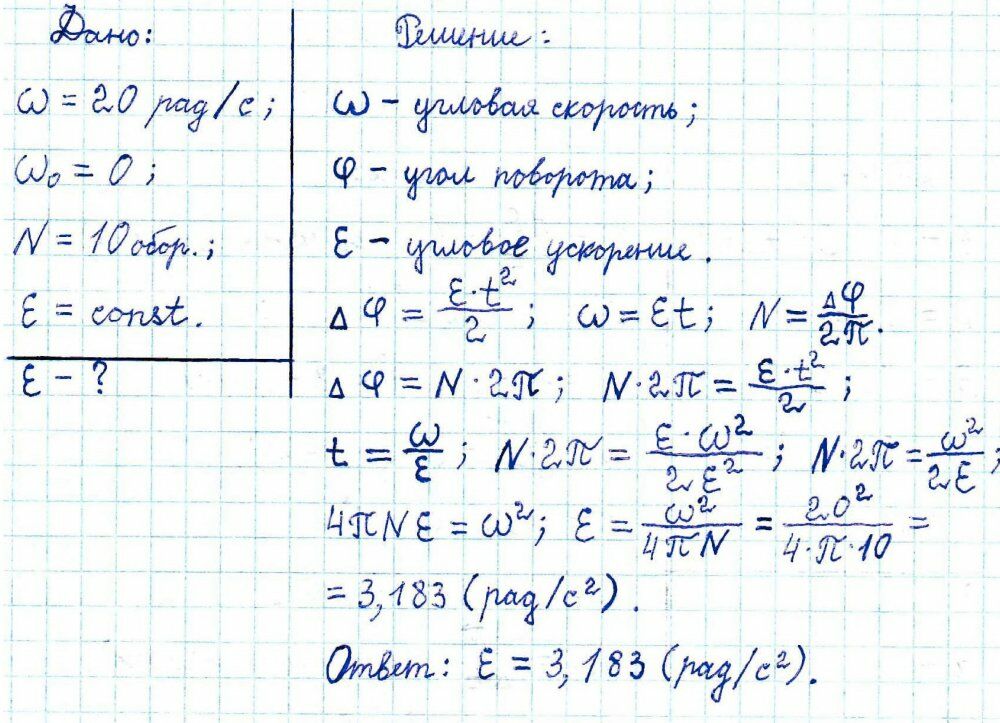 Дано:
ω = 20 рад/с;
ω₀ = 0;
N = 10 обор.;
ε = const.
ε - ?
Решение:
ω - угловая скорость;
φ - угол поворота;
ε - угловое ускорение.
Δφ = ε·t²/2; ω = εt; N = Δφ/2π.
Δφ = N·2π; N·2π = ε·t²/2;
t = ω/ε; N·2π = ε·ω²/2ε²; N·2π = ω²/2ε;
4πNε = ω²; ε = ω²/4πN = 20²/4·π·10 =
= 3,183 (рад/с²).
Ответ: ε = 3,183 (рад/с²).